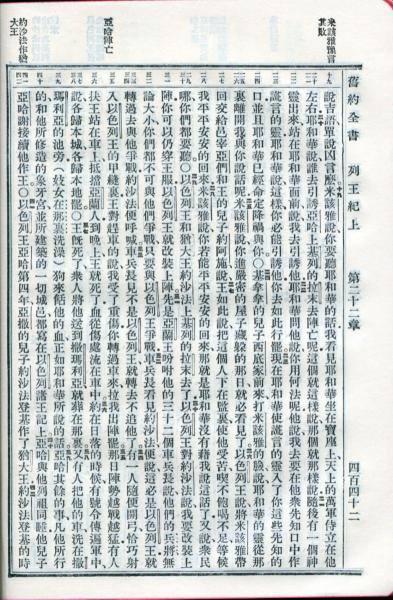 舊約全書 列王紀上 第二十二章 四百四十二
米該雅豫言其敗
說吉語單說凶言麽米該雅說你要聽耶和華的話我看見耶和華坐在寶座上天上的萬軍侍立在他
左右耶和華說誰去引誘亞哈上基列的拉末去陣亡呢這個就這樣說那個就那樣說隨後有一個神
靈出來站在耶和華面前說我去引誘他耶和華問他說你用何法呢他說我去要在他衆先知口中作
謊言的靈耶和華說這樣你必能引誘他你去如此行罷現在耶和華使謊言的靈入了你這些先知的
口並且耶和華已經命定降禍與你○基拿拿的兒子西底家前來打米該雅的臉說耶和華的靈從那
裏離開我與你說話呢米該雅說你進嚴密的屋子藏躲的那日就必看見了以色列王說將米該雅帶
回交給邑宰亞們和王的兒子約阿施說王如此說把這個人下在監裏使他受苦喫不飽喝不足等候
我平平安安的回來米該雅說你若能平平安安的回來那就是耶和華沒有藉我說這話了又說衆民
哪你們都要聽○以色列王和猶大王約沙法上基列的拉末去了以色列王對約沙法說我要改裝上
陣你可以仍穿王服以色列王就改裝上陣先是亞蘭王吩咐他的三十二個車兵長說他們的兵將無
亞哈陣亡
論大小你們都不可與他們爭戰只要與以色列王爭戰車兵長看見約沙法便說這必是以色列王就
轉過去與他爭戰約沙法便呼喊車兵長見不是以色列王就轉去不追他了有一人隨便開弓恰巧射
入以色列王的甲縫裏王對趕車的說我受了重傷你轉過車來拉我出陣罷那日陣勢越戰越猛有人
扶王站在車上抵擋亞蘭人到晚上王就死了血從傷處流在車中約在日落的時候有號令傳遍軍中
說各歸本城各歸本地罷○王既死了衆人將他送到撒瑪利亞就葬在那裏又有人把他的車洗在撒
瑪利亞的池旁(妓女在那裏洗澡)狗來餂他的血正如耶和華所說的話亞哈其餘的事凡他所行
的和他所修造的象牙宮並所建築的一切城邑都寫在以色列諸王記上亞哈與他列祖同睡他兒子
約沙法作猶大王
亞哈謝接續他作王○以色列王亞哈第四年亞撒的兒子約沙法登基作了猶大王約沙法登基的時